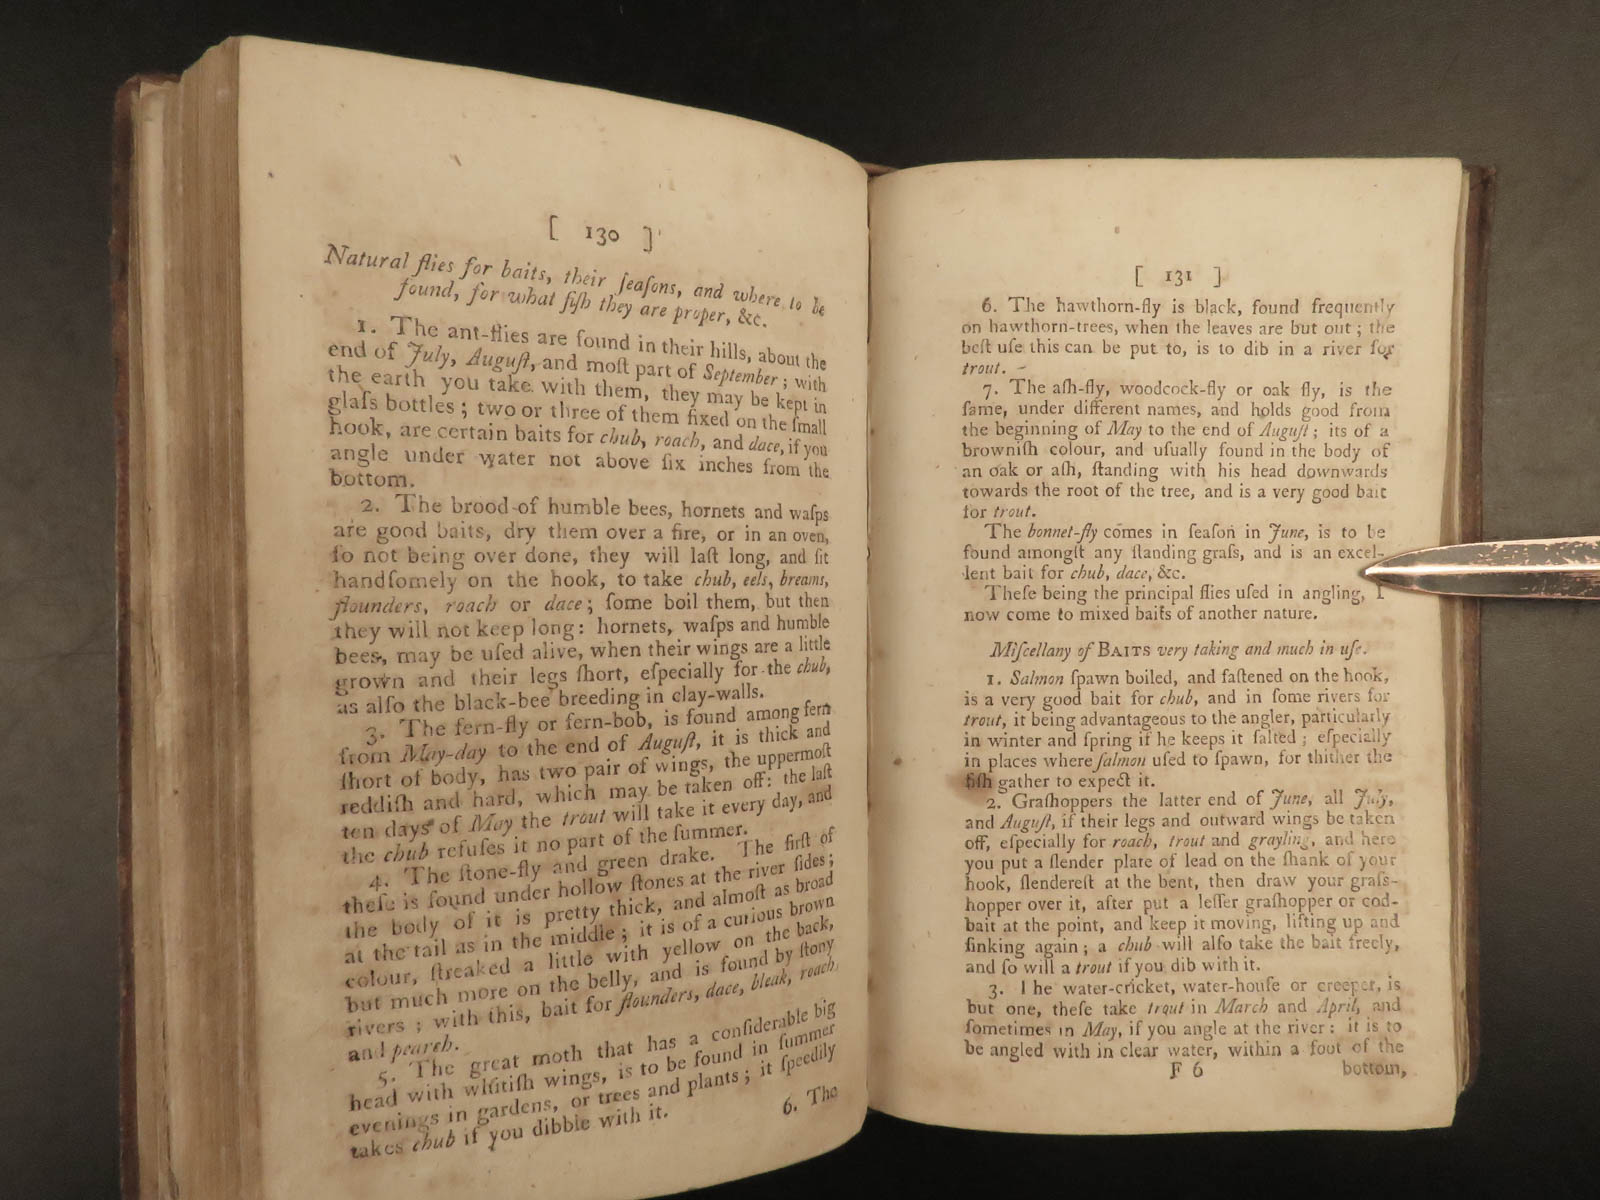 [ 130 ]
Natural flies for baits, their ſeaſons, and where to be
found, for what fiſh they are proper, &c.
1. The ant-flies are found in their hills, about the
end of July, Auguſt, and moſt part of September; with
the earth you take with them, they may be kept in
glaſs bottles; two or three of them fixed on the ſmall
hook, are certain baits for chub, roach, and dace, if you
angle under water not above ſix inches from the
bottom.
2. The brood of humble bees, hornets and waſps
are good baits, dry them over a fire, or in an oven,
ſo not being over done, they will laſt long, and ſit
handſomely on the hook, to take chub, eels, breams,
flounders, roach or dace; ſome boil them, but then
they will not keep long: hornets, waſps and humble
bees, may be uſed alive, when their wings are a little
grown and their legs ſhort, eſpecially for the chub,
as alſo the black-bee breeding in clay-walls.
3. The fern-fly or fern-bob, is found among fern
from May-day to the end of Auguſt, it is thick and
ſhort of body, has two pair of wings, the uppermoſt
reddiſh and hard, which may be taken off: the laſt
ten days of May the trout will take it every day, and
the chub refuſes it no part of the ſummer.
4. The ſtone-fly and green drake. The firſt of
theſe is found under hollow ſtones at the river ſides;
the body of it is pretty thick, and almoſt as broad
at the tail as in the middle; it is of a curious brown
colour, ſtreaked a little with yellow on the back,
but much more on the belly, and is found by ſtony
rivers; with this, bait for flounders, dace, bleak, roach,
and pearch.
5. The great moth that has a conſiderable big
head with whitiſh wings, is to be found in ſummer
evenings in gardens, or trees and plants; it ſpeedily
takes chub if you dibble with it.
6. The
[ 131 ]
6. The hawthorn-fly is black, found frequently
on hawthorn-trees, when the leaves are but out; the
beſt uſe this can be put to, is to dib in a river for
trout.
7. The aſh-fly, woodcock-fly or oak fly, is the
ſame, under different names, and holds good from
the beginning of May to the end of Auguſt; its of a
browniſh colour, and uſually found in the body of
an oak or aſh, ſtanding with his head downwards
towards the root of the tree, and is a very good bait
for trout.
The bonnet-fly comes in ſeaſon in June, is to be
found amongſt any ſtanding graſs, and is an excel-
lent bait for chub, dace, &c.
Theſe being the principal flies uſed in angling, I
now come to mixed baits of another nature.
Miſcellany of BAITS very taking and much in uſe.
1. Salmon ſpawn boiled, and faſtened on the hook,
is a very good bait for chub, and in ſome rivers for
trout, it being advantageous to the angler, particularly
in winter and ſpring if he keeps it ſalted; eſpecially
in places where ſalmon uſed to ſpawn, for thither the
fiſh gather to expect it.
2. Graſhoppers the latter end of June, all July,
and Auguſt, if their legs and outward wings be taken
off, eſpecially for roach, trout and grayling, and here
you put a ſlender plate of lead on the ſhank of your
hook, ſlendereſt at the bent, then draw your graſs-
hopper over it, after put a leſſer graſhopper or cod-
bait at the point, and keep it moving, lifting up and
ſinking again; a chub will alſo take the bait freely,
and ſo will a trout if you dib with it.
3. The water-cricket, water-houſe or creeper, is
but one, theſe take trout in March and April, and
ſometimes in May, if you angle at the river: it is to
be angled with in clear water, within a foot of the
F 6 bottom,